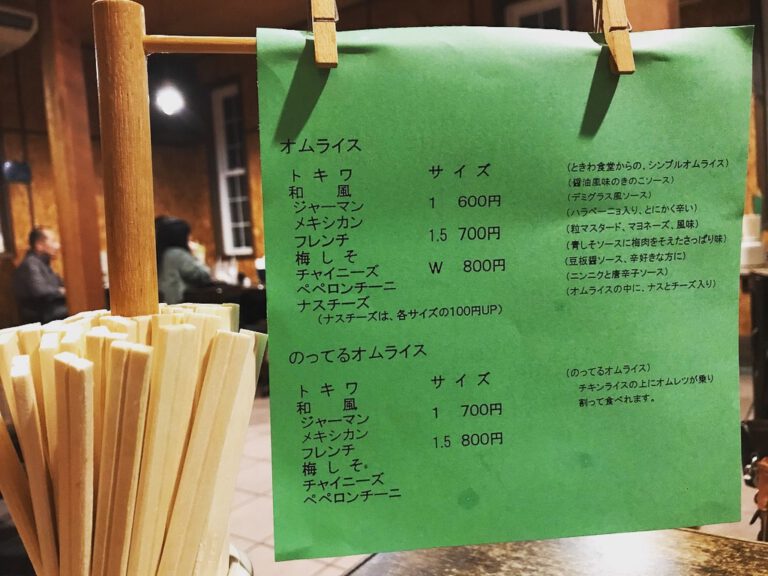 オムライス
トキワ
和風
ジャーマン
メキシカン
フレンチ
梅しそ
チャイニーズ
ペペロンチーニ
ナスチーズ
(ナスチーズは、各サイズの100円UP)
サイズ
1 600円
1.5 700円
W 800円
(ときわ食堂からの、シンプルオムライス)
(醤油風味のきのこソース)
(デミグラス風ソース)
(ハラペーニョ入り、とにかく辛い)
(粒マスタード、マヨネーズ、風味)
(青しそソースに梅肉をそえたさっぱり味)
(豆板醤ソース、辛好きな方に)
(ニンニクと唐辛子ソース)
(オムライスの中に、ナスとチーズ入り)
のってるオムライス
トキワ
和風
ジャーマン
メキシカン
フレンチ
梅しそ。
チャイニーズ
ペペロンチーニ
サイズ
1 700円
1.5 800円
(のってるオムライス)
チキンライスの上にオムレツが乗り
割って食べれます。